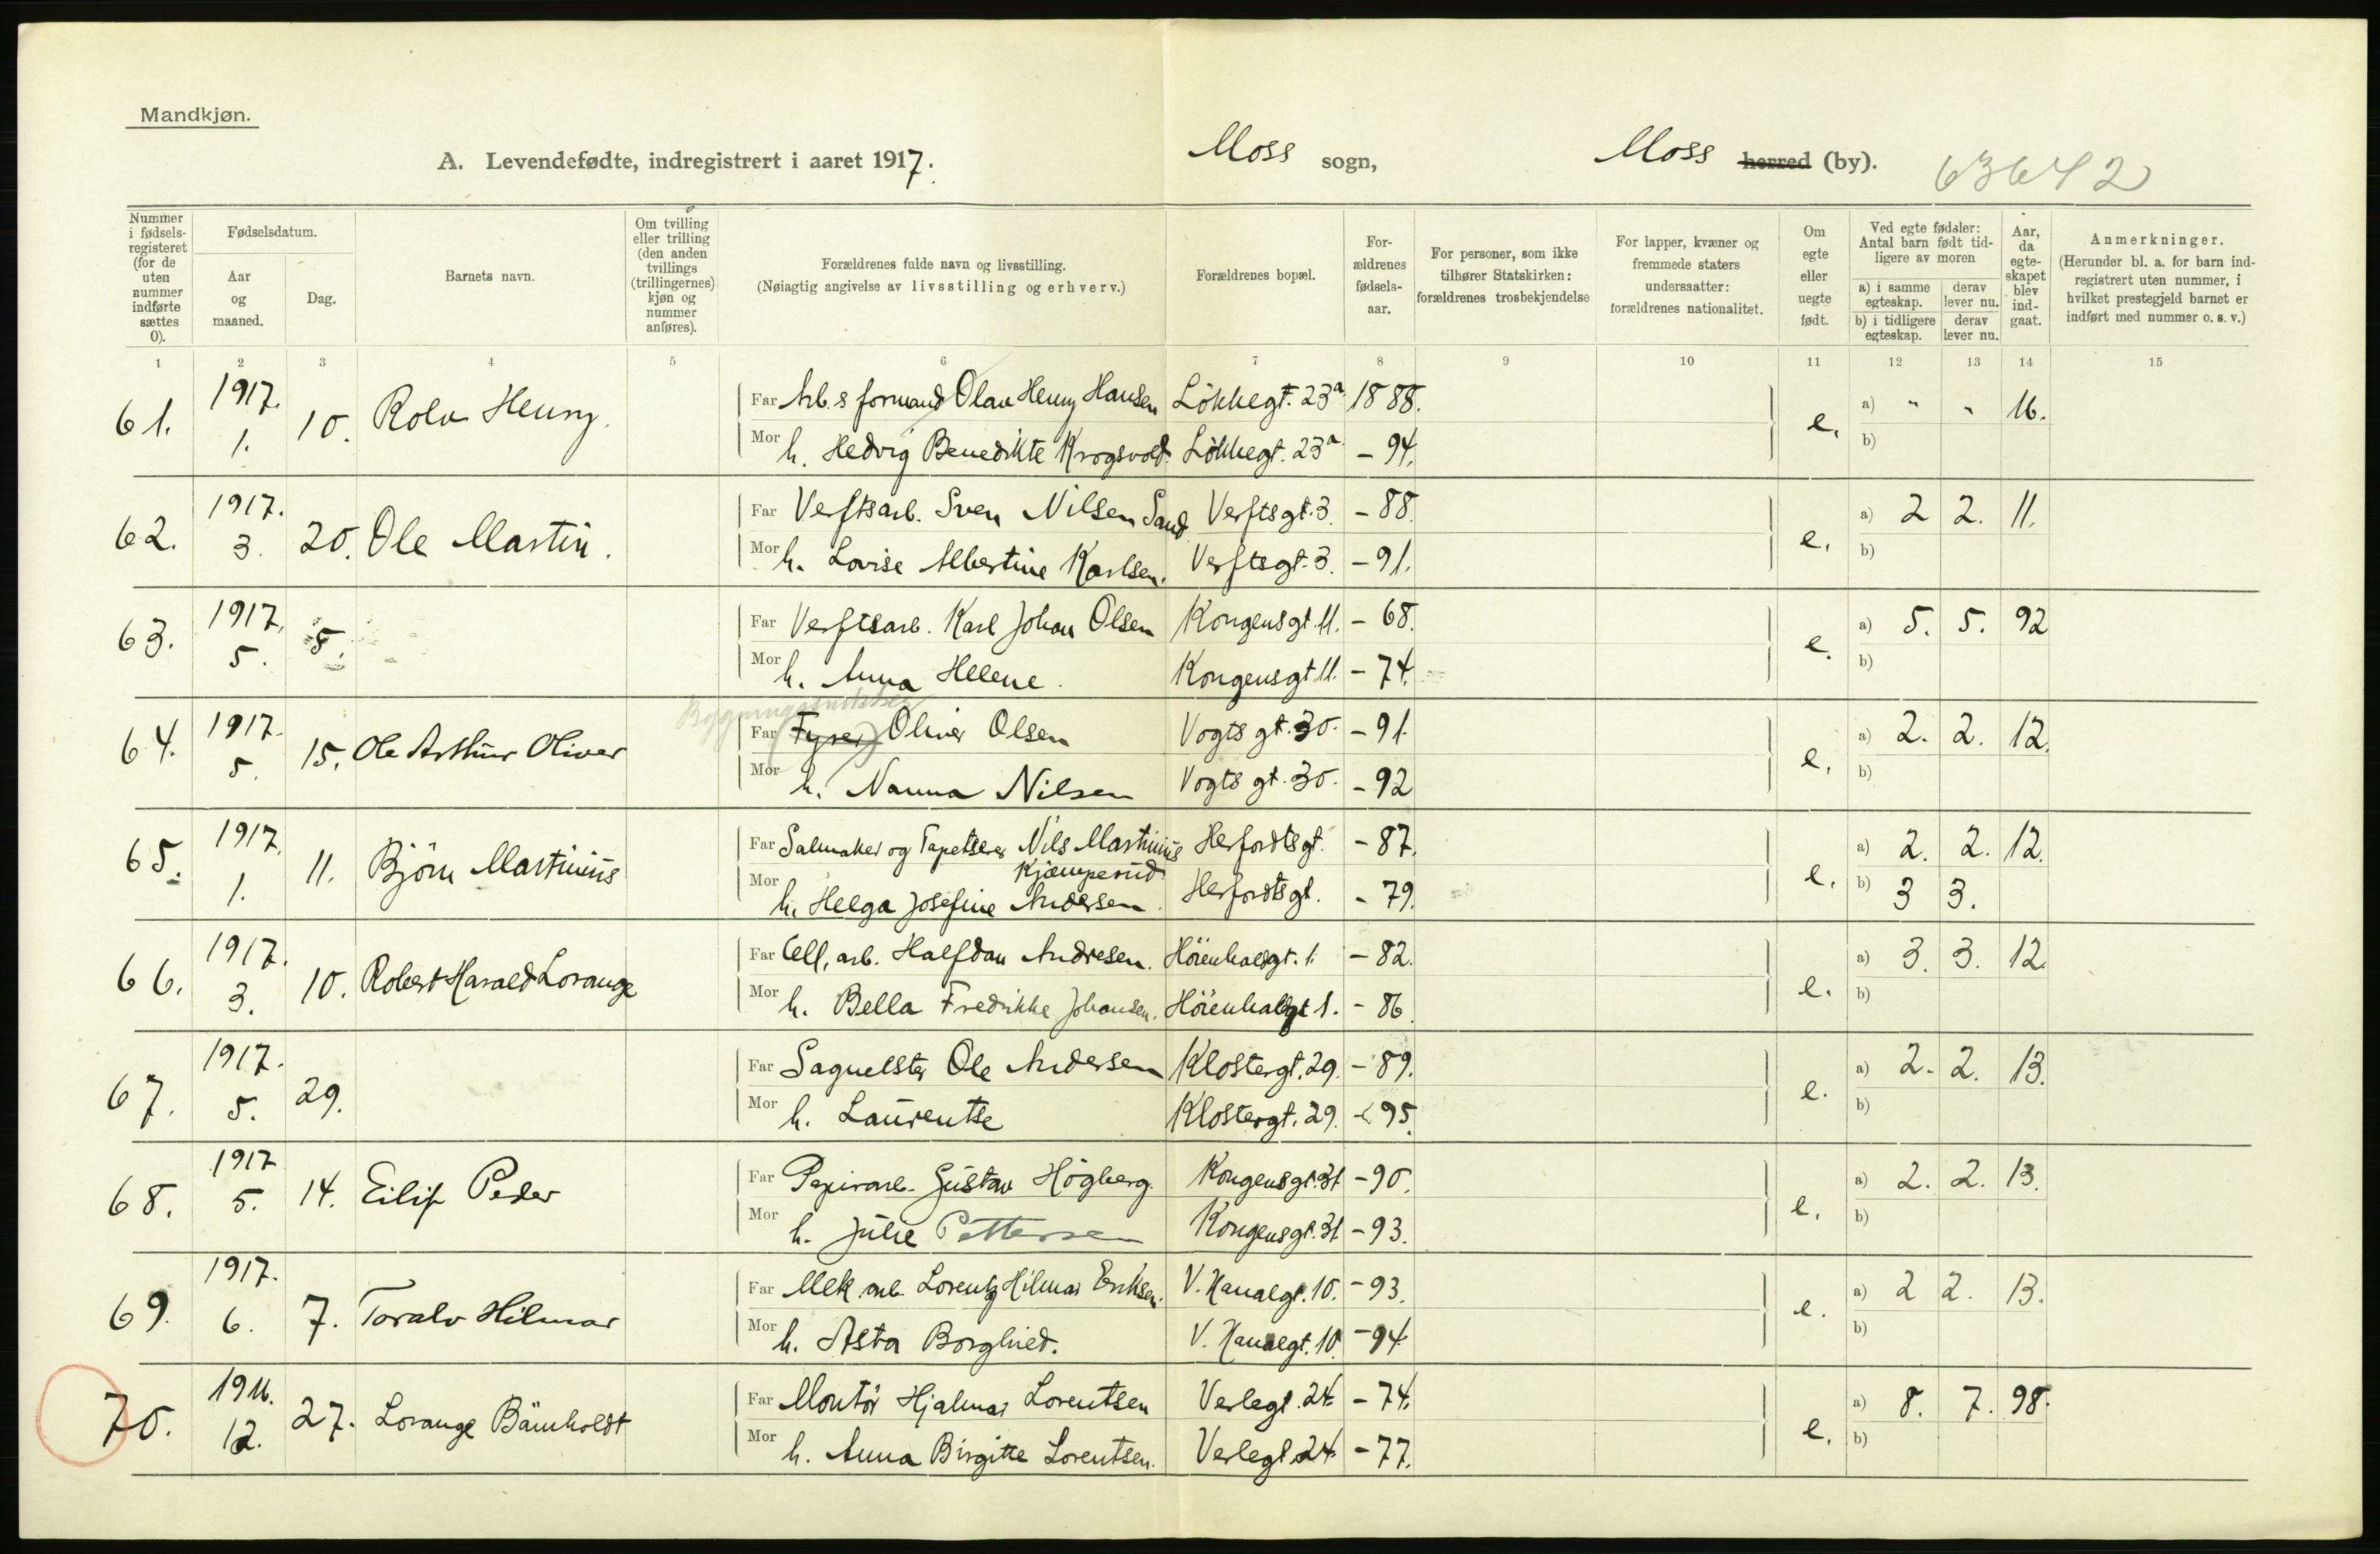 Mandkjøn.
A. Levendefødte, indregistrert i aaret 1917.
Moss sogn,
Moss herred (by).
63642
Nummer i fødsels-registeret (for de uten nummer indførte sættes 0).
Fødselsdatum.
Aar og maaned.
Dag.
Barnets navn.
Om tvilling eller trilling (den anden tvillings (trillingernes) kjøn og nummer anføres).
Forældrenes fulde navn og livsstilling.
(Nøiagtig angivelse av livsstilling og erhverv.)
Forældrenes bopæl.
For-ældrenes fødsels-aar.
For personer, som ikke tilhører Statskirken: forældrenes trosbekjendelse
For lapper, kvæner og fremmede staters undersaatter: forældrenes nationalitet.
Om egte eller uegte født.
Ved egte fødsler: Antal barn født tid-ligere av moren
a) i samme egteskap.
derav lever nu.
b) i tidligere egteskap.
derav lever nu.
Aar, da egte-skapet blev ind-gaat.
Anmerkninger.
(Herunder bl. a. for barn ind-registrert uten nummer, i hvilket prestegjeld barnet er indført med nummer o. s. v.)
1 2 3 4 5 6 7 8 9 10 11 12 13 14 15
61. 1917. 1. 10. Rolv Henry.
Far Arb.s formand Olav Henry Hansen Løkkegt. 23a 1888. e. a) " " 16.
Mor h. Hedvig Benedikte Krogsvold. Løkkegt. 23a - 94. b)
62. 1917. 3. 20. Ole Martin.
Far Verftsarb. Sven Nilsen Sand Verftsgt. 3. - 88. e. a) 2 2. 11.
Mor h. Lovise Albertine Karlsen. Verftsgt. 3. - 91. b)
63. 1917. 5. 5.
Far Verftsarb. Karl Johan Olsen Kongensgt. 11. - 68. e. a) 5. 5. 92
Mor h. Anna Helene. Kongensgt 11. - 74. b)
64. 1917. 5. 15. Ole Arthur Oliver
Far (Fyrer) Oliver Olsen Vogts gt. 30. - 91. e. a) 2. 2. 12.
Mor h. Nanna Nilsen Vogts gt. 30. - 92 b)
65. 1917. 1. 11. Bjørn Martinius
Far Salmaker og Tapetserer Nils Martinius Kjæmperud Herfordtsgt. - 87. e. a) 2. 2. 12.
Mor h. Helga Josefine Andersen. Herfordtsgt. - 79. b) 3 3.
66. 1917. 3. 10. Robert Harald Lorange
Far Cell. arb. Halfdan Andresen. Höienhaldgt. 1. - 82. e. a) 3. 3. 12.
Mor h. Bella Fredrikke Johansen. Höienhaldgt 1. - 86. b)
67. 1917. 5. 29.
Far Ole Andersen Klostergt. 29. - 89. e. a) 2. 2. 13.
Mor h. Laurentse Klostergt. 29. - 95. b)
68. 1917 5. 14. Eilif Peder
Far Papirarb. Gustav Högberg. Kongensgt. 31 - 90. e. a) 2. 2. 13.
Mor h. Julie Pettersen Kongensgt. 31 - 93. b)
69. 1917. 6. 7. Toralv Hilmar
Far Mek. arb. Lorentz Hilmar Eriksen. V. Kanalgt. 10. - 93. e. a) 2 2. 13.
Mor h. Asta Borghild. V. Kanalgt. 10. - 94. b)
70. 1916. 12. 27. Lorange Bämholdt
Far Montör Hjalmar Lorentsen Verlegt. 24. - 74. e. a) 8. 7. 98.
Mor h. Anna Birgitte Lorentsen. Verlegt 24. - 77. b)